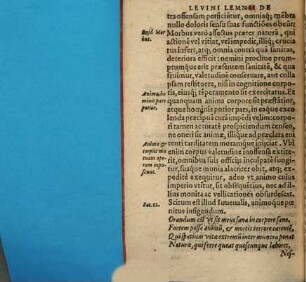 LEVINI LEMNII DE
tra offensam perficiatur, omniaq; mẽbra
nullo doloris sensu suas functiones obeunt
Morbus verò affectus præter naturã, qui
actionẽ vel vitiat, vel impedit, illiq; crucia
tus infert, atq; omnia contrà quã sanitas,
deteriora efficit: nemini proclive prom-
ptumque erit præsentem sanitatẽ, & qua
fruimur, valetudinẽ conservare, aut colla
psam restituere, nisi in cognitione corpo-
ris, eiusq; temperamento sit exercitatus. Et
quanquam anima corpore sit præstãtior,
atque hominis potior pars, in eaque exco-
lenda præcipua cura impẽdi velim: corpo
ris tamen accuratè prospiciendum censeo,
ne oneri sit animæ, illique ad præclara eni
tenti tarditatem metumque iniiciat. Vbi
enim corpus valetudine inoffensa exstite-
rit, omnibus suis officiis inculpatè fungi-
tur, suaque munia alacriter obit, atq; ex-
peditè exequitur, adeo vt animo cuius
imperio vtitur, sit obsequutius, nec ad il-
lius monita ac vellicationes obsurdescat.
Scitum est illud Iuvenalis, animoque pæ-
nitus insigendum.
Sat. 10.
Orandum est vt sit mens sana in corpore sano,
Fortem posce animũ, & mortis terrore carentẽ,
Qui spatium vitæ extremũ inter munera ponat
Naturæ, qui ferre queat quoscunque labores,
Nes-